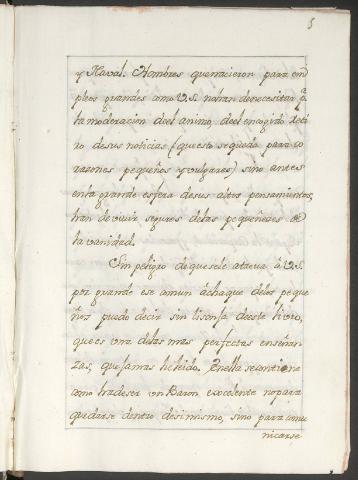 5
y Naval. Hombres que nacieron para em
pleos grandes como V.S. no han de necesitar p.ª
la moderacion del animo, del encogido reti
ro de sus noticias (que esto se queda para co
razones pequeños y vulgares) sino antes
en la grande esfera de sus altos pensamientos,
han de vivir seguros de las pequeñezes de
la vanidad.
Sin peligro de que se le atreva á V.S.
por grande ese comun áchaque de los peque
ños puedo decir sin lisonja de este livro,
que es una de las mas perfectas enseñan
zas, que jamas he leido. En ella se contiene
como ha de ser un Baron excelente no para
quedarse dentro de si mismo, sino para comu
nicarse